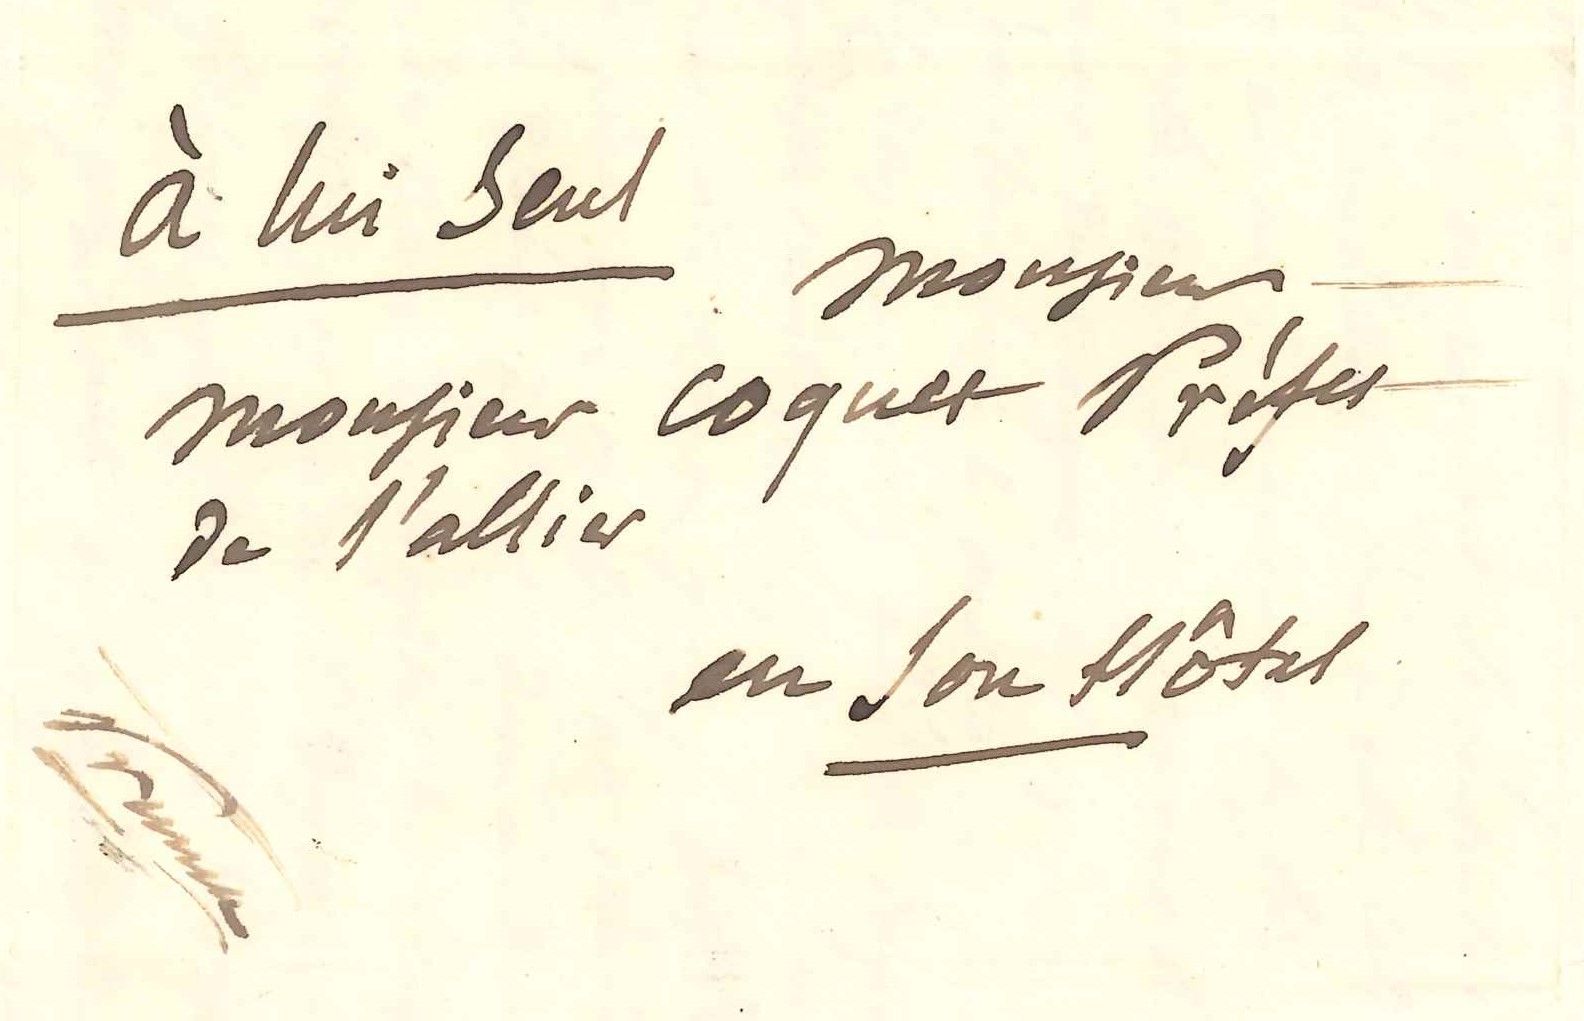 à lui Seul
Monsieur
Monsieur Coquet Préfet
de l'allier
en Son Hôtel